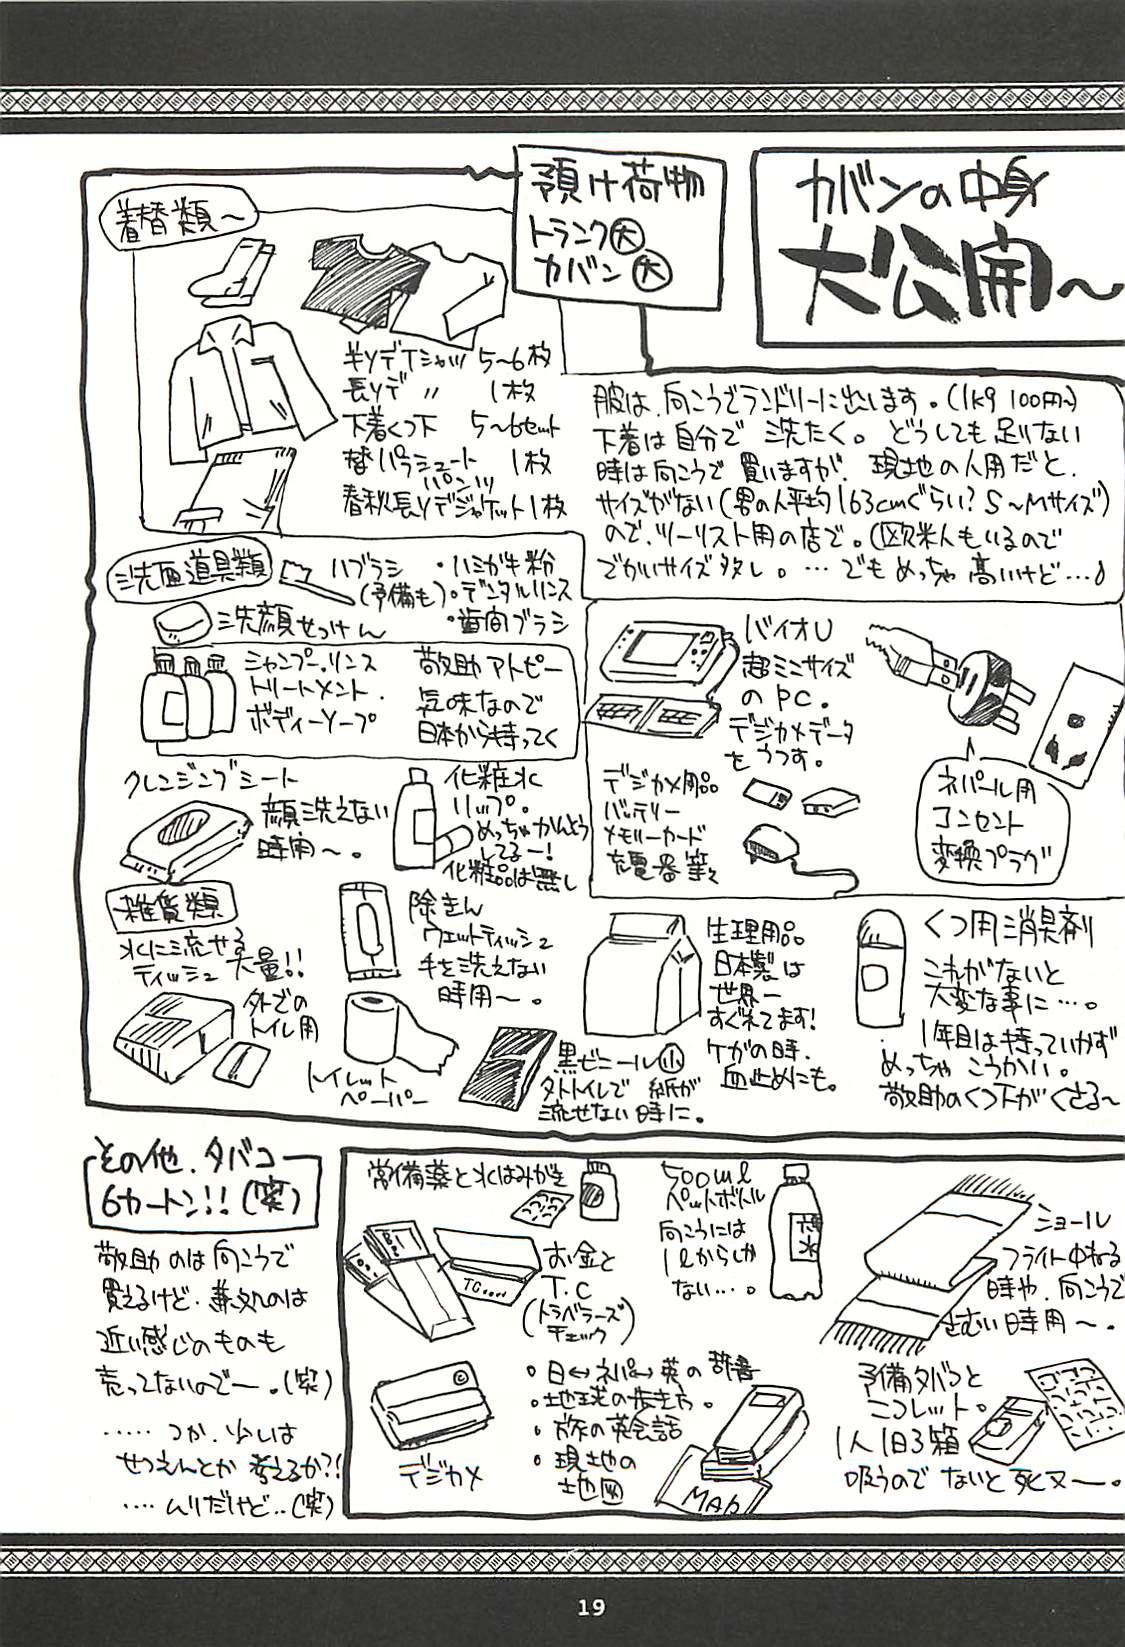 カバンの中身
大公開〜
預け荷物
トランク大
カバン大
着替類〜
半ソデTシャツ 5〜6枚
長ソデ 〃 1枚
下着くつ下 5〜6セット
替パラシュート
パンツ 1枚
春秋長ソデジャケット1枚
服は、向こうでランドリーに出します。(1kg 100円〜)
下着は自分で洗たく。どうしても足りない
時は向こうで買いますが、現地の人用だと、
サイズがない(男の人平均163cmぐらい?S〜Mサイズ)
ので、ツーリスト用の店で。(欧米人もいるので
でかいサイズ多し。…でもめっちゃ高いけど…♪
洗面道具類
ハブラシ
(予備も)
・ハミガキ粉
・デンタルリンス
・歯間ブラシ
洗顔せっけん
シャンプー、リンス
トリートメント、
ボディーソープ
敬助アトピー
気味なので
日本から持ってく
クレンジングシート
顔洗えない
時用〜。
化粧水
リップ。
めっちゃかんそう
してるー!
化粧品は無し
バイオU
超ミニサイズ
のPC。
デジカメデータ
をうつす。
デジカメ用品
バッテリー
メモリーカード
充電器等々
ネパール用
コンセント
変換プラグ
雑貨類
水に流せる
ティッシュ大量!!
外での
トイレ用
除きん
ウェットティッシュ
手を洗えない
時用〜。
トイレット
ペーパー
黒ビニール小
外トイレで紙が
流せない時に。
生理用品
日本製は
世界一
すぐれてます!
ケガの時、
血止めにも。
くつ用消臭剤
これがないと
大変な事に…。
1年目は持っていかず
めっちゃこうかい。
敬助のくつ下がくさる〜
その他、タバコ
6カートン!!(笑)
敬助のは向こうで
買えるけど、兼処のは
近い感じのものも
売ってないので〜。(笑)
……つか、少しは
せつえんとか考えるか?!
…ムリだけど…(笑)
常備薬と水はみがき
お金と
T.C
(トラベラーズ
チェック)
T.C
500ml
ペットボトル
向こうには
1lからしか
ない…。
水
ショール
フライト中ねる
時や、向こうで
さむい時用〜。
デジカメ
・日↔ネパ↔英の辞書
・地球の歩き方。
・旅の英会話
・現地の
地図
MAP
予備タバコと
ニコレット。
1人1日3箱
吸うのでないと死ヌ〜。
19